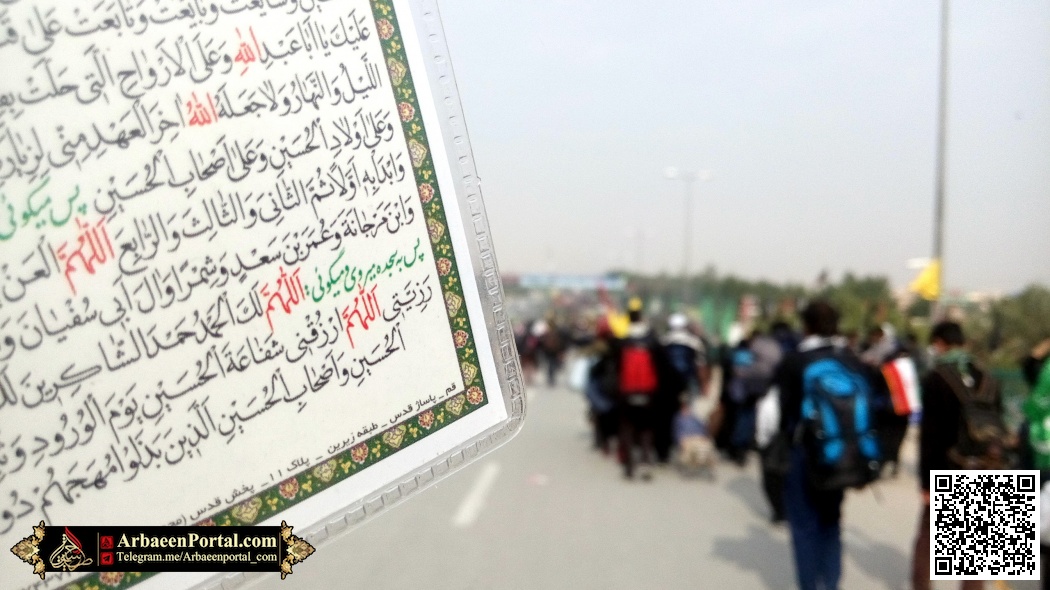 وَشَايَعَتْ وَبَايَعَتْ وَتَابَعَتْ عَلَى
عَلَيْكَ يَا اَبَا عَبْدِ اللهِ وَعَلَى الْاَرْوَاحِ الَّتِى حَلَّتْ
اللَّيْلُ وَالنَّهَارُ وَلَا جَعَلَهُ اللهُ اخِرَ الْعَهْدِ مِنّى
وَعَلَى اَوْلَادِ الْحُسَيْنِ وَعَلَى اَصْحَابِ الْحُسَيْنِ پس میگوئی
وَابْدَأْ بِهِ اَوَّلًا ثُمَّ الثَّانِىَ وَالثَّالِثَ وَالرَّابِعَ اَللّهُمَّ الْعَنْ
وَابْنَ مَرْجَانَةَ وَعُمَرَ بْنَ سَعْدٍ وَشِمْرًا وَالَ اَبى سُفْيَانَ
پس به سجده میروی و میگوئی: اَللّهُمَّ لَكَ الْحَمْدُ حَمْدَ الشَّاكِرينَ
رَزِيَّتى اَللّهُمَّ ارْزُقْنى شَفَاعَةَ الْحُسَيْنِ يَوْمَ الْوُرُودِ
الْحُسَيْنِ وَاَصْحَابِ الْحُسَيْنِ الَّذينَ بَذَلُوا مُهَجَهُمْ
قم _ پاساژ قدس _ طبقه زیرین _ پلاک ۱۱۱ _ پخش قدس
ArbaeenPortal.com
Telegram.me/Arbaeenportal_com